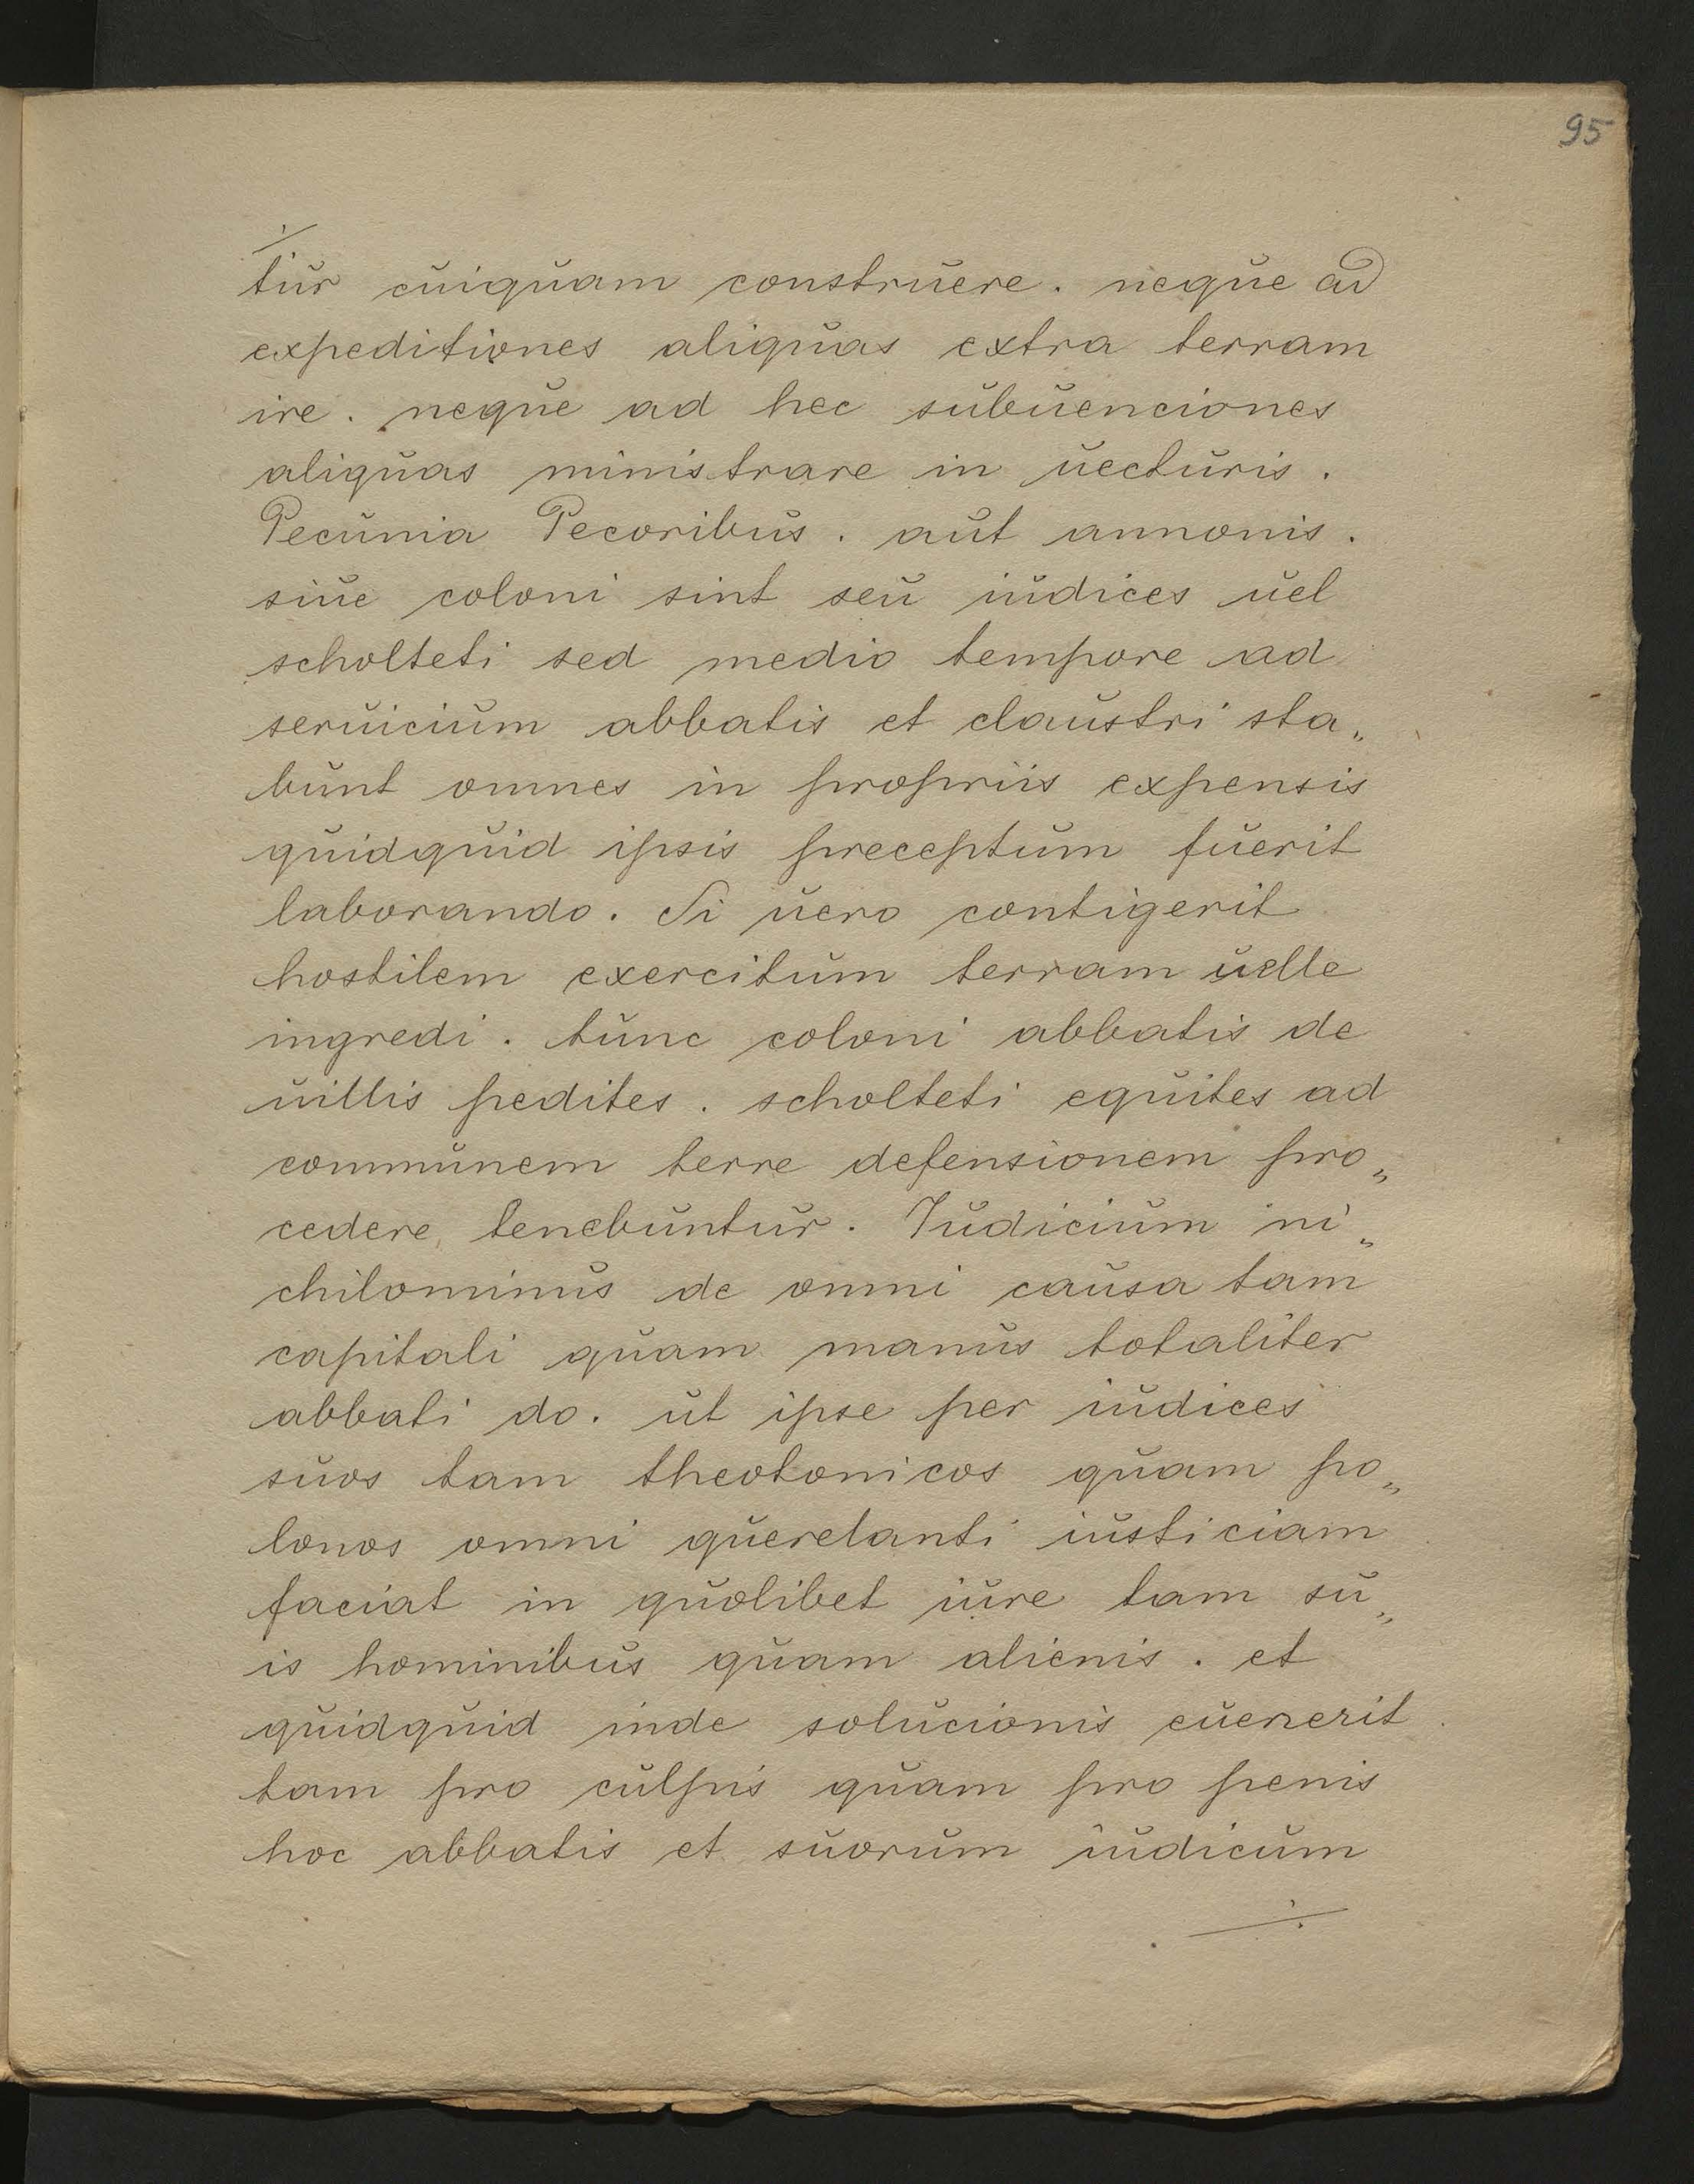 95
tur cuiquam construere. neque ad
expeditiones aliquas extra terram
ire. neque ad hec subuenciones
aliquas ministrare in uecturis.
Pecunia Pecoribus. aut annonis.
siue coloni sint seu iudices uel
scholteti sed medio tempore ad
seruicium abbatis et claustri sta„
bunt omnes in propriis expensis
quidquid ipsis preceptum fuerit
laborando. Si uero contigerit
hostilem exercitum terram uelle
ingredi. tunc coloni abbatis de
uillis pedites. scholteti equites ad
communem terre defensionem pro„
cedere tenebuntur. Iudicium ni„
chilominus de omni causa tam
capitali quam manus totaliter
abbati do. ut ipse per iudices
suos tam theotonicos quam po„
lonos omni querelanti iusticiam
faciat in quolibet iure tam su„
is hominibus quam alienis. et
quidquid inde solucionis euenerit
tam pro culpis quam pro penis
hoc abbatis et suorum iudicum